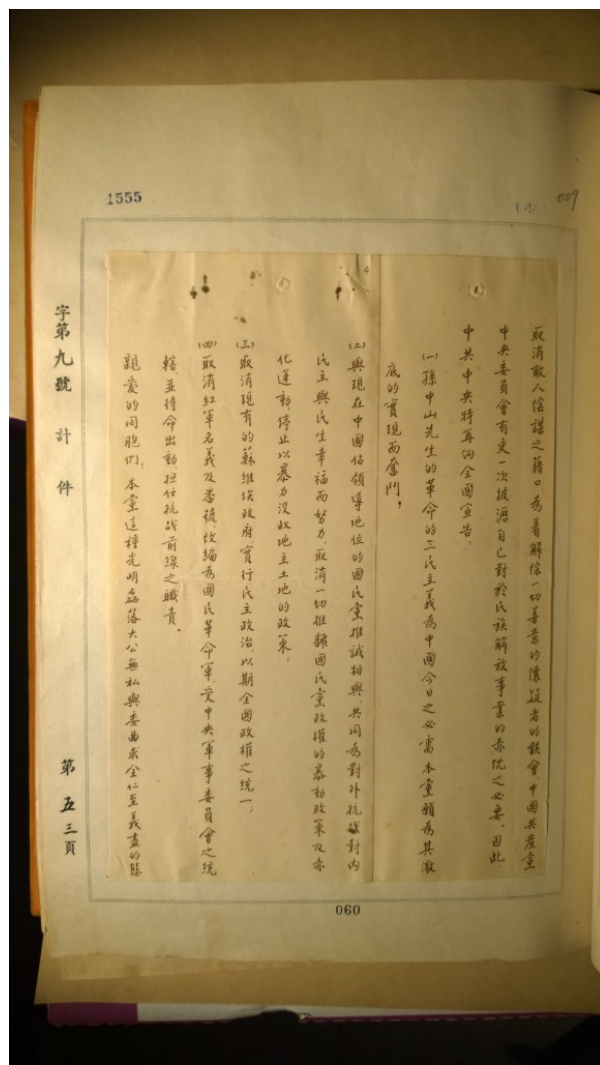 1555
009
取消敵人陰謀之藉口，為着解除一切善意的懷疑者的誤會，中國共產黨
中央委員會有更一次披瀝自己對於民族解放事業的赤忱之必要。因此，
中共中央特再向全國宣告：
(一)孫中山先生的革命的三民主義為中國今日之必需本黨願為其澈
底的實現而奮鬥。
(二)與現在中國佔領導地位的國民黨推誠相與，共同為對外抗戰對內
民主與民生幸福而努力，取消一切推翻國民黨政權的暴動政策及赤
化運動，停止以暴力沒收地主土地的政策；
(三)取消現有的蘇維埃政府，實行民主政治，以期全國政權之統一；
(四)取消紅軍名義及番號，改編為國民革命軍，受中央軍事委員會之統
轄並待命出動担任抗战前線之職責。
親愛的同胞們，本黨這種光明磊落大公無私與委曲求全仁至義盡的態
字第九號 計 件 第五三頁
060